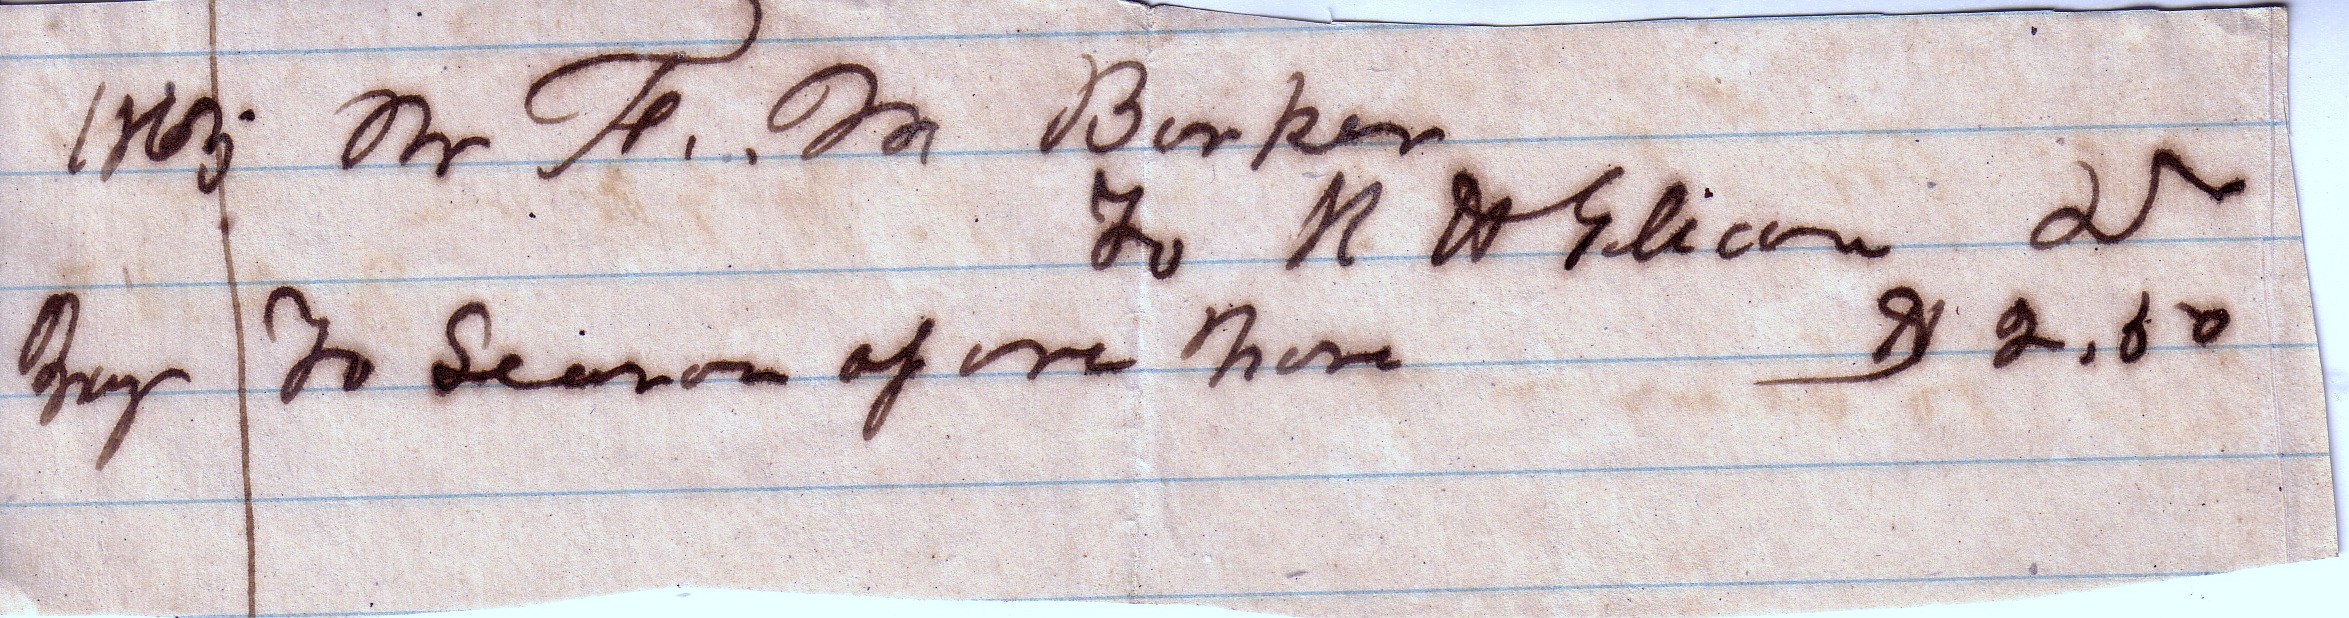 1863 Mr F. M Barker
To R H Glicon Dr
To Season of one hors $ 2,50